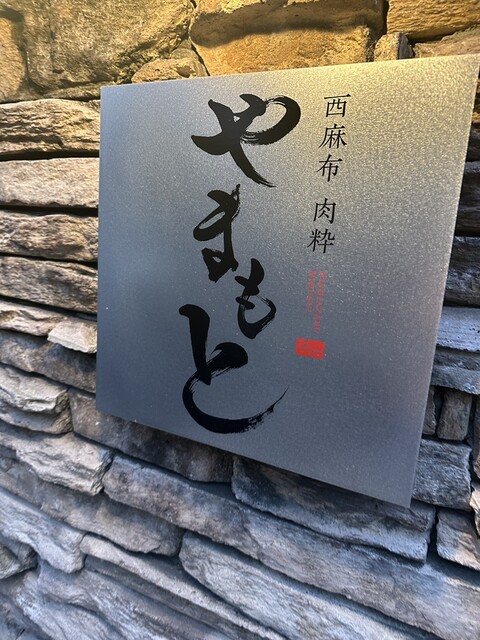 西麻布 肉粋
やまもと